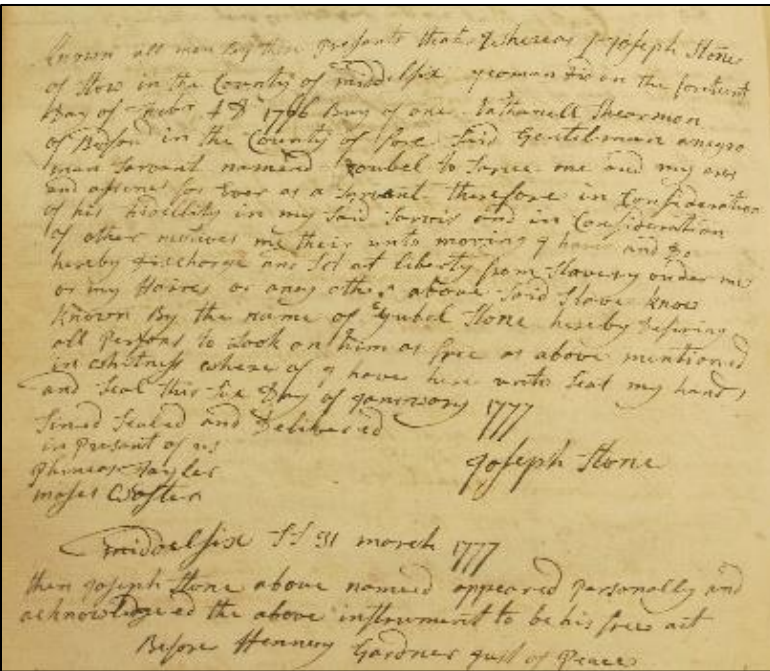 Known all men By these Presents that Whereas I Joseph Stone
of Stow in the County of middelsix yeoman Did on the
Day of 1766 Buy of one Nathanell Shearmon
of in the County of fore Said Gentelman a negro
man Servant named to Sarve me and my
and for Ever as a Sarvent therefore in Consideration
of his fidellity in my Said Sarvis and in Consideration
of other motives me their unto moving I have and Do
hereby Discharge and Set at liberty from Slavery under me
or my Haires or any other above Said Slave
Known By the name of Jubel Stone hereby Desiring
all Persons to Look on him as free as above mentioned
in Whitness where of I have here unto Seat my hand
and Seal this Six Day of 1777
Sined Sealed and Delivered
in Present of us
Joseph Stone
Phineas Tayler
moses
middelsix SS 31 march 1777
then Joseph Stone above named appeared Personally and
acknowledgeed the above instrument to be his free act
Before Hennery Gardner Just of Peace